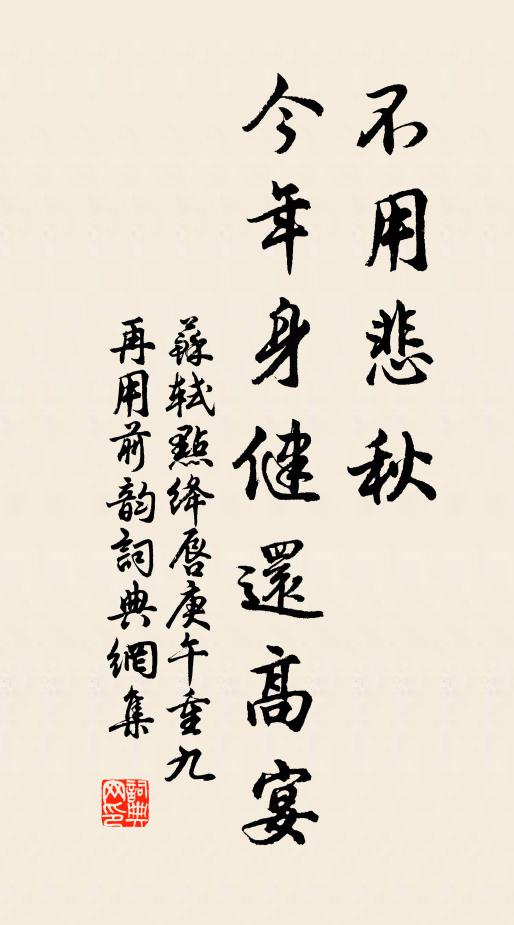 不用悲秋
今年身健還高宴
蘇軾點絳唇庚午重九
再用前韵詞典網集
詞典網印